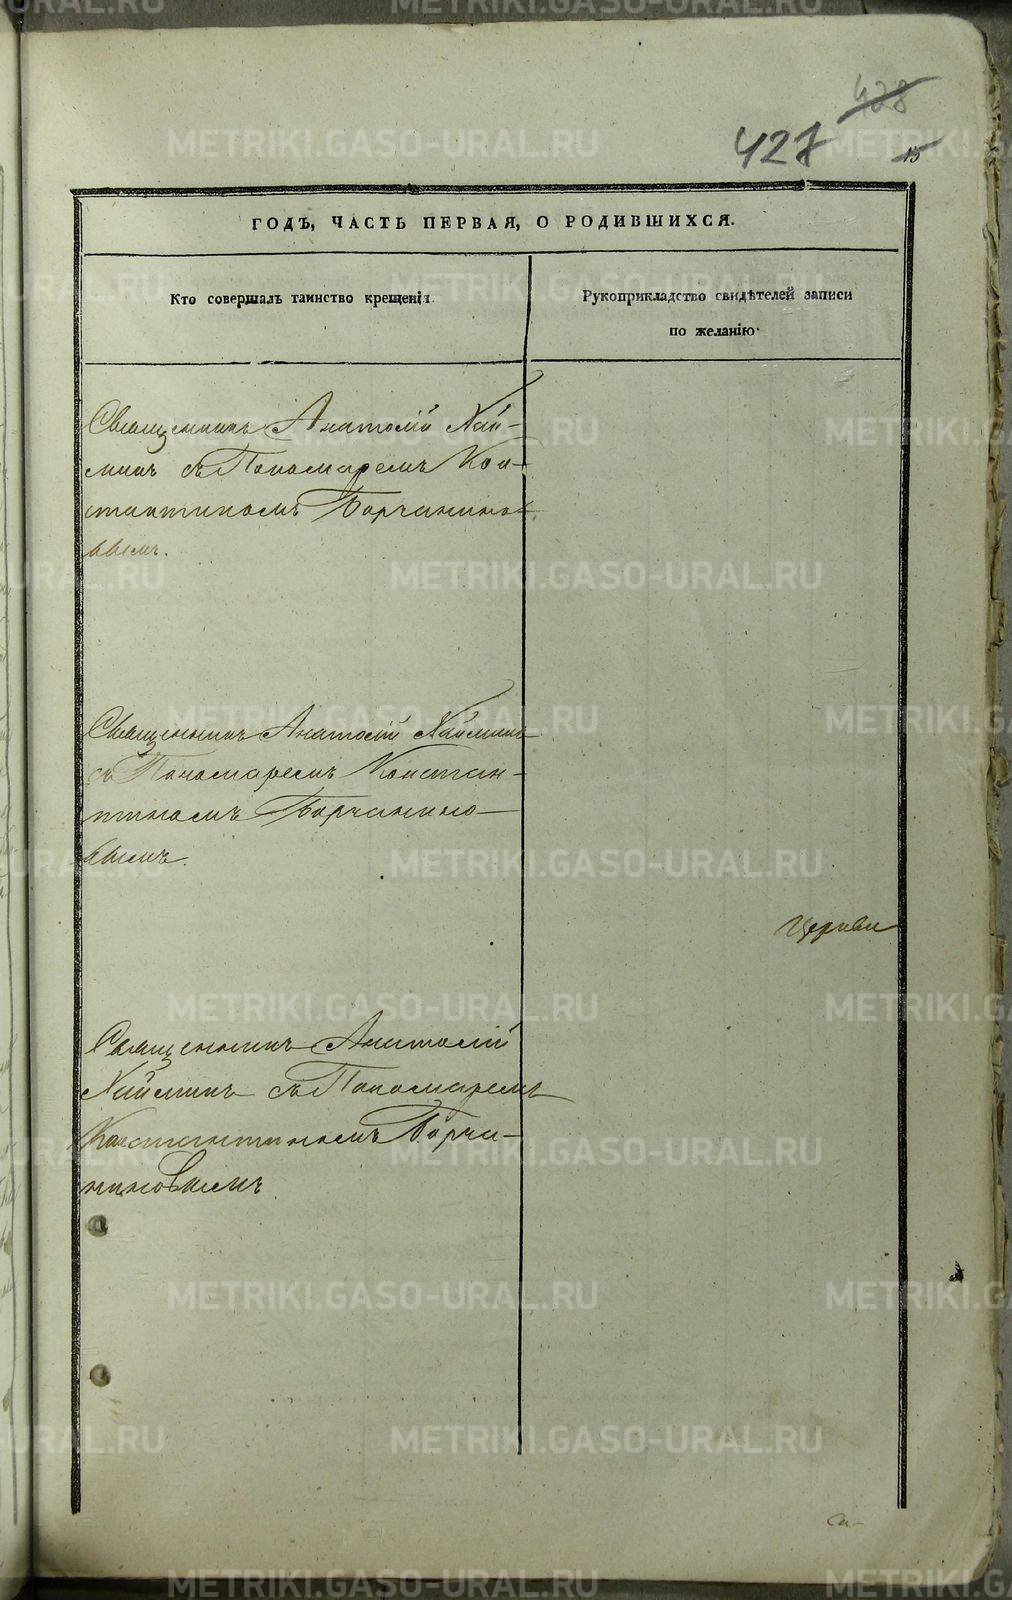 428
427
15
ГОДЪ, ЧАСТЬ ПЕРВАЯ, О РОДИВШИХСЯ.
Кто совершалъ таинство крещенія.
Рукоприкладство свидѣтелей записи
по желанію.
Священникъ Анатолій Най-
минъ съ Пономаремъ Кон-
стантиномъ Борчанино-
вымъ.
Священникъ Анатолій Найминъ
съ Пономаремъ Констан-
тиномъ Борчанино-
вымъ.
Церкви
Священникъ Анатолій
Найминъ съ Пономаремъ
Константиномъ Борча-
ниновымъ
METRIKI.GASO-URAL.RU